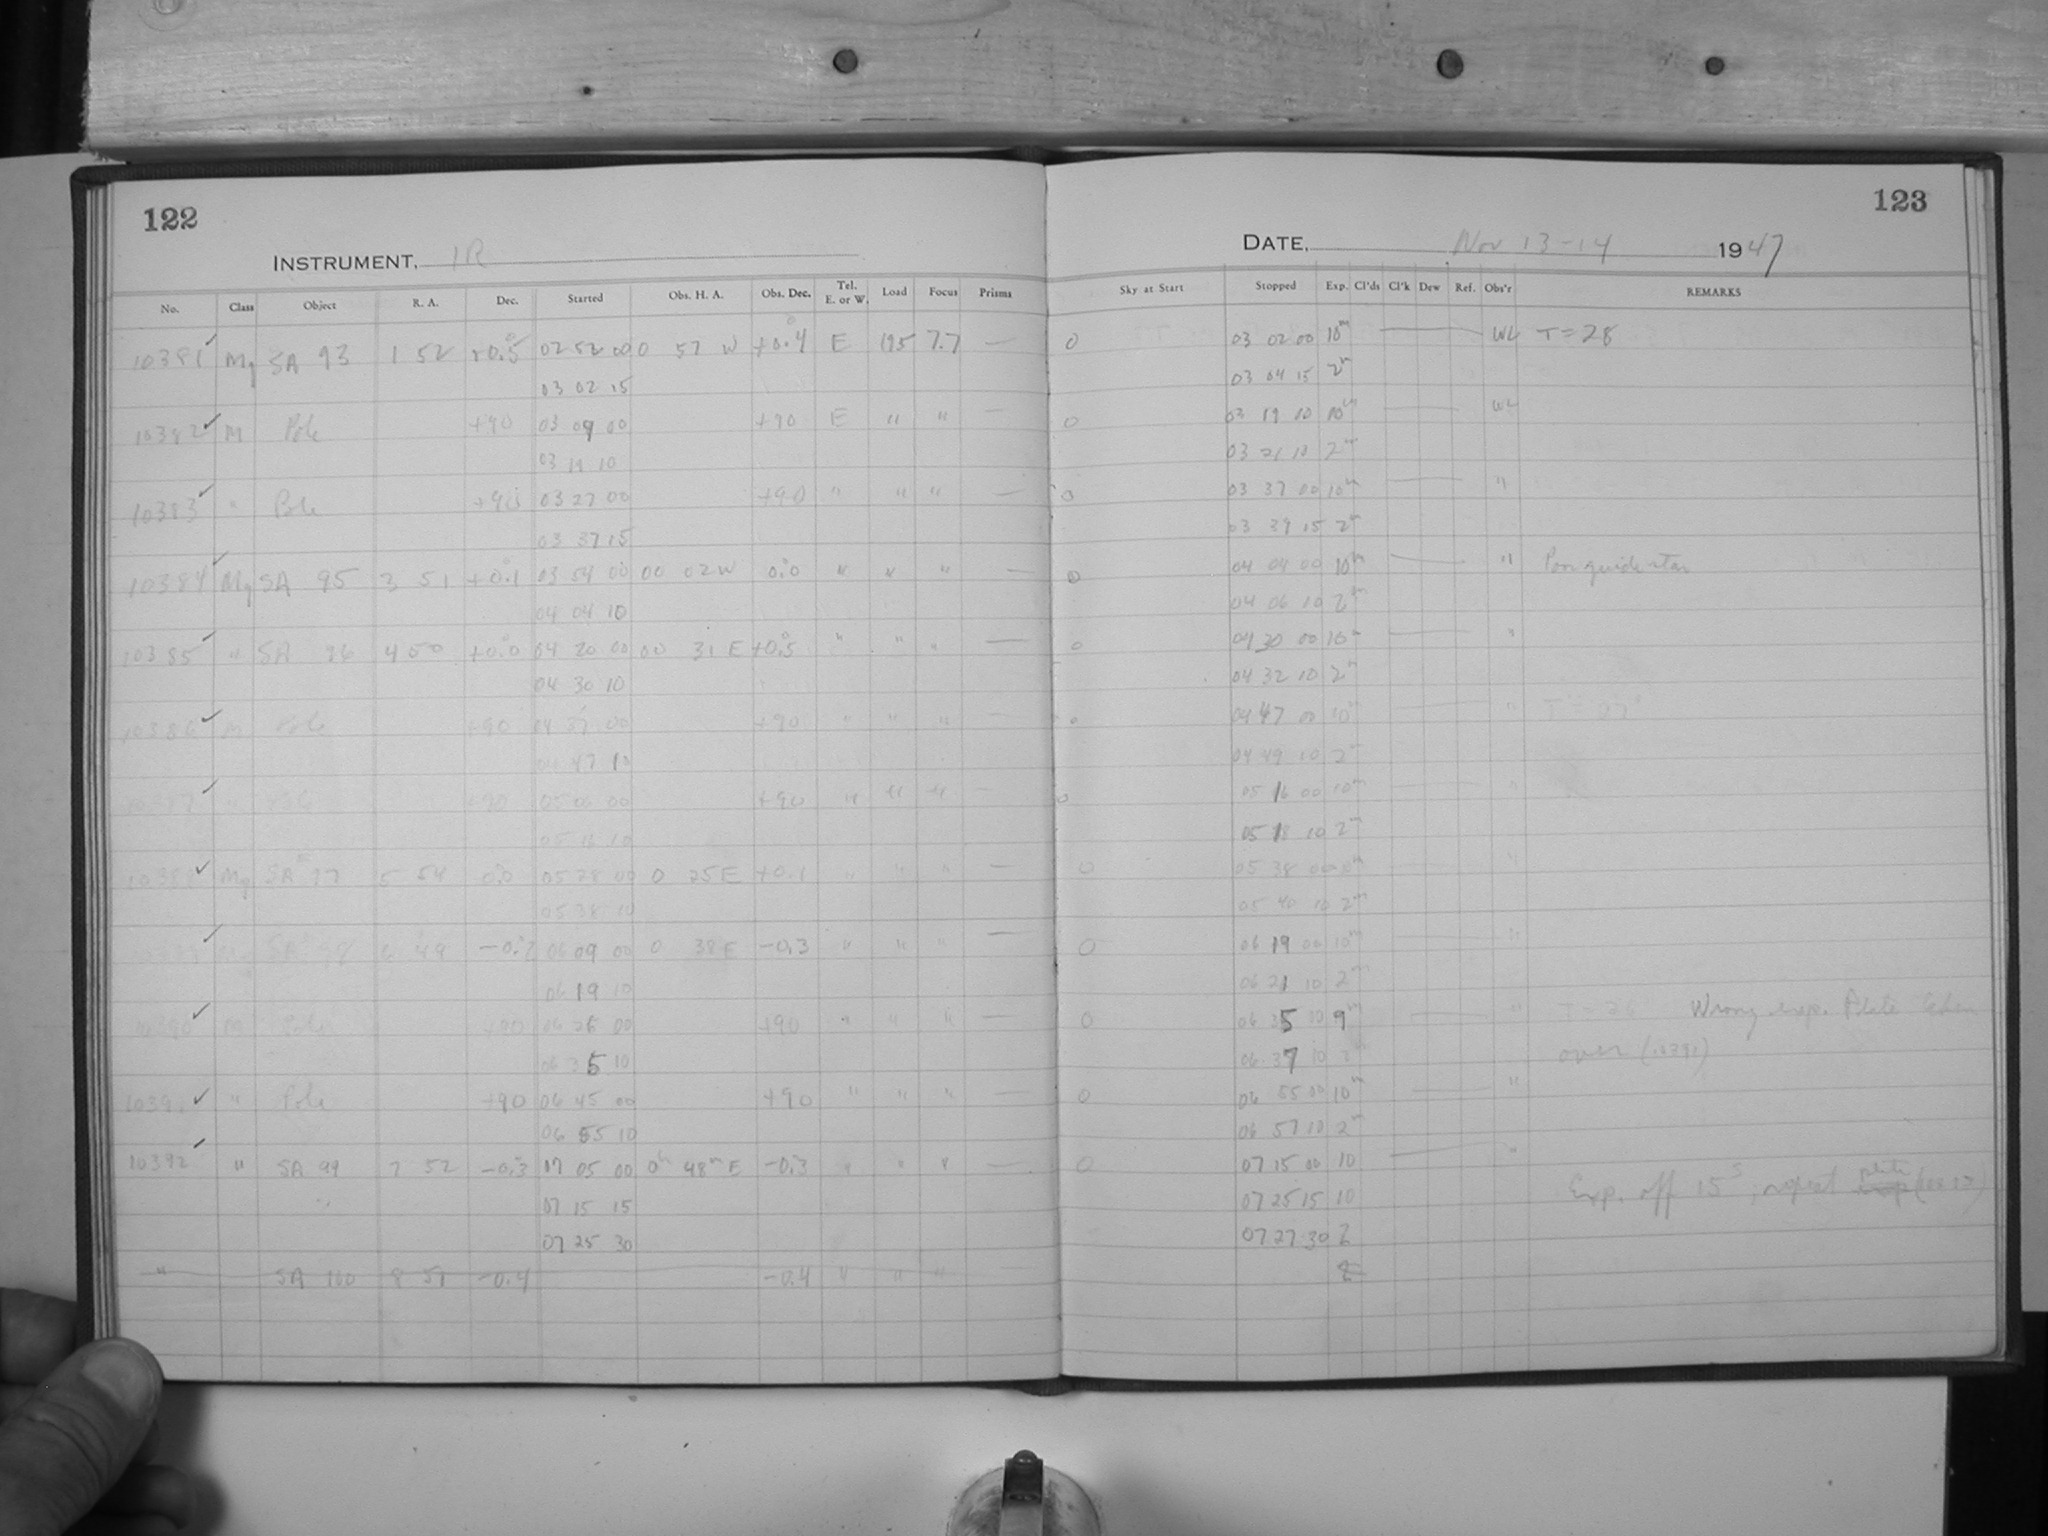 122
INSTRUMENT, IR
No. Class Object R. A. Dec. Started Obs. H. A. Obs. Dec. Tel. E. or W. Load Focus Prisms
10381 Mg SA 93 1 52 +0.5 02 52 00 0 57 W +0.4 E 195 7.7 —
03 02 15
10382 M Pole +90 03 09 00 +90 E " " —
03 19 10
10383 " Pole +90 03 27 00 +90 " " " —
03 37 15
10384 Mg SA 95 3 51 +0.1 03 54 00 00 02 W 0.0 " " " —
04 04 10
10385 " SA 96 4 50 +0.0 04 20 00 00 31 E +0.5 " " " —
04 30 10
10386 M Pole +90 04 37 00 +90 " " " —
04 47 10
10387 " Pole +90 05 06 00 +90 " " " —
05 16 10
10388 Mg SA 97 5 54 0.0 05 28 00 0 25 E +0.1 " " " —
05 38 10
SA 98 6 49 −0.2 06 09 00 0 38 E −0.3 " " " —
06 19 10
10390 M Pole +90 06 26 00 +90 " " " —
06 35 10
10391 " Pole +90 06 45 00 +90 " " " —
06 55 10
10392 " SA 99 7 52 −0.3 07 05 00 0h 48m E −0.3 " " " —
07 15 15
07 25 30
" SA 100 8 51 −0.4 −0.4 " " "
123
DATE, Nov 13-14 1947
Sky at Start Stopped Exp. Cl'ds Cl'k Dew Ref. Obs'r REMARKS
0 03 02 00 10m WL T=28
03 04 15 2m
0 03 19 10 10m WL
03 21 10 2m
0 03 37 00 10m "
03 39 15 2m
0 04 04 00 10m " Poor guide star
04 06 10 2m
0 04 30 00 10m "
04 32 10 2m
0 04 47 00 10m "
04 49 10 2m
0 05 16 00 10m "
05 18 10 2m
0 05 38 00 10m "
05 40 10 2m
0 06 19 00 10m "
06 21 10 2m
0 06 35 00 9m " T=26 Wrong exp. Plate taken
06 37 10 2m over (10391)
0 06 55 00 10m "
06 57 10 2m
0 07 15 00 10 "
07 25 15 10 Exp. off 15s, repeat plate
07 27 30 2
2